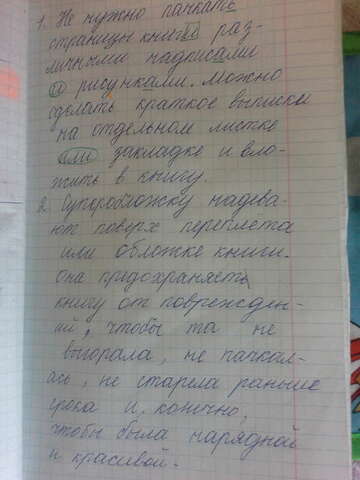 1. Не нужно пачкать
страницы книги раз-
личными надписами
со рисунками. Можно
сделать краткое выписки
на отдельном листке
или закладке и вло-
жить в книгу.
2. Суперобложку надева-
ют поверх переплёта
или обложке книги.
Она предохраняеть
книгу от поврежден-
ий, чтобы та не
выгорала, не пачкал-
ась, не старела раньше
срока и, конечно,
чтобы была нарядной
и красивой.